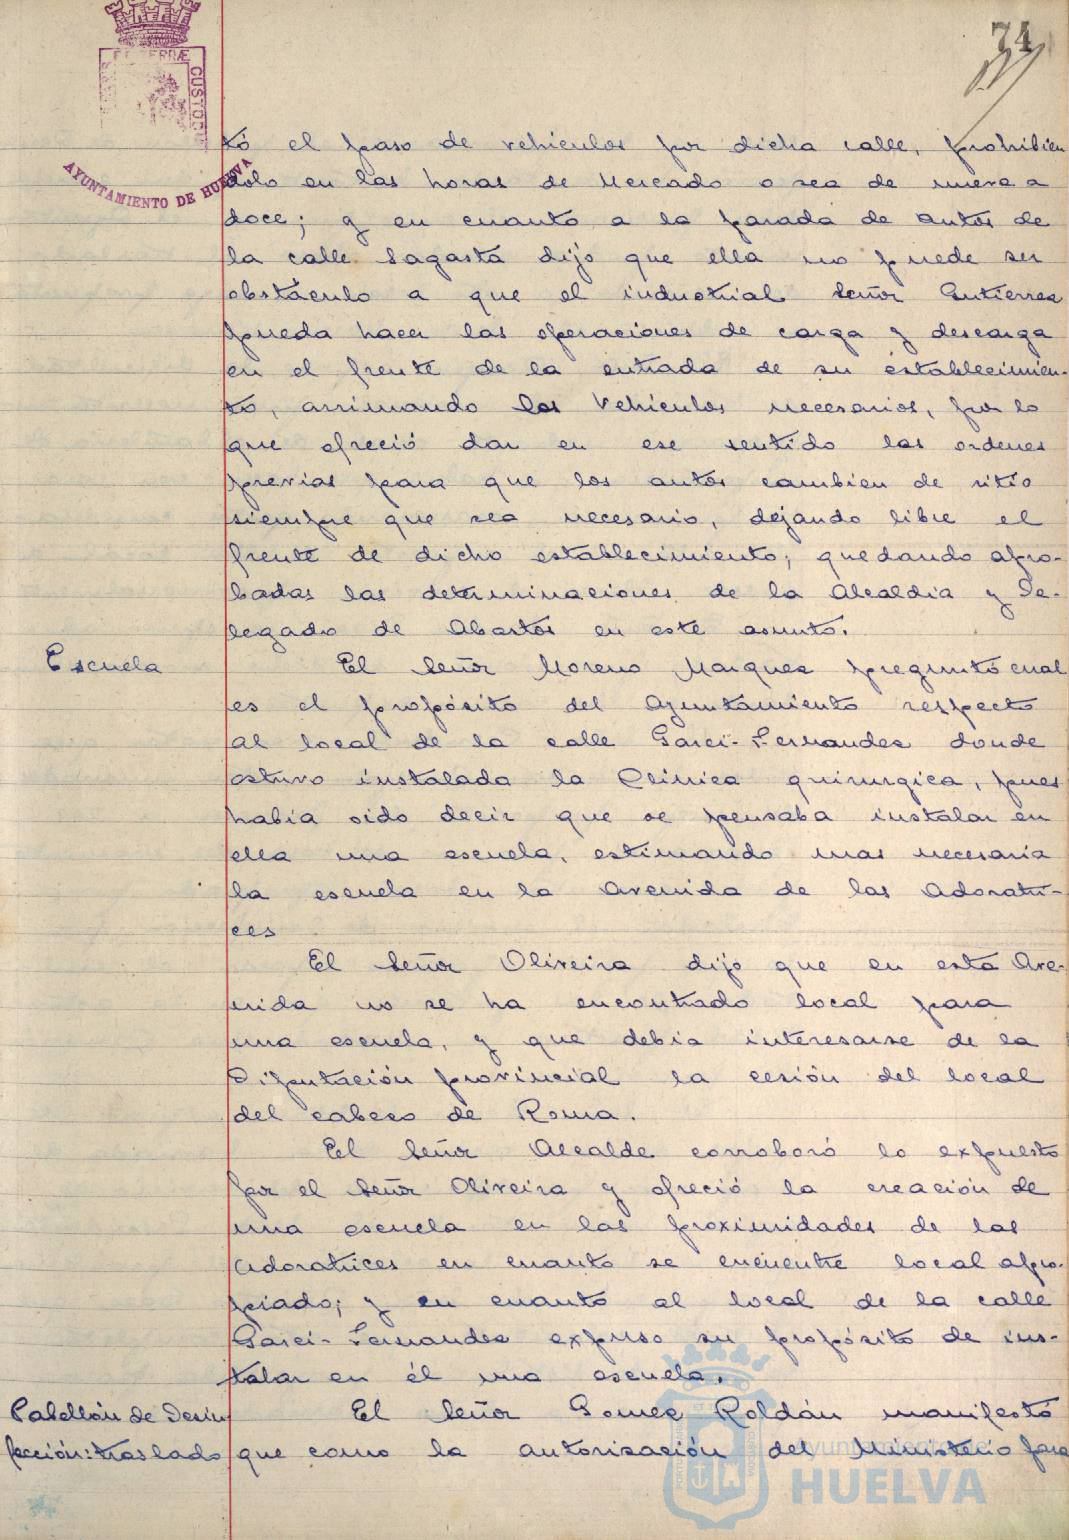 74
TERRÆ
CUSTOD
AYUNTAMIENTO DE HUELVA
tó el paso de vehiculos por dicha calle, prohibien
dolo en las horas de Mercado o sea de nueve a
doce; y en cuanto a la parada de autos de
la calle Sagasta dijo que ella no puede ser
obstáculo a que el industrial Señor Gutierrez
pueda hacer las operaciones de carga y descarga
en el frente de la entrada de su establecimien-
to, arrimando los vehiculos necesarios, por lo
que ofreció dar en ese sentido las ordenes
previas para que los autos cambien de sitio
siempre que sea necesario, dejando libre el
frente de dicho establecimiento; quedando apro-
badas las determinaciones de la Alcaldia y De-
legado de Abastos en este asunto.
Escuela
El Señor Moreno Marquez preguntó cual
es el propósito del Ayuntamiento respecto
al local de la calle Garci-Fernandez donde
estuvo instalada la Clinica quirurgica, pues
habia oido decir que se pensaba instalar en
ella una escuela, estimando mas necesaria
la escuela en la Avenida de las Adoratri-
ces
El Señor Oliveira dijo que en esta Ave-
nida no se ha encontrado local para
una escuela, y que debia interesarse de la
Diputación provincial la cesión del local
del cabezo de Roma.
El Señor Alcalde corroboró lo expuesto
por el Señor Oliveira y ofreció la creación de
una escuela en las proximidades de las
Adoratrices en cuanto se encuentre local apro-
piado; y en cuanto al local de la calle
Garci-Fernandez expuso su propósito de ins-
talar en él una escuela.
Pabellón de Desin
fección: traslado
El Señor Gomez Roldán manifestó
que como la autorización del Ministerio para
Ayuntamiento de
HUELVA